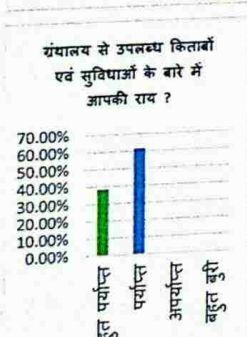 ग्रंथालय से उपलब्ध किताबों
एवं सुविधाओं के बारे में
आपकी राय ?
70.00%
60.00%
50.00%
40.00%
30.00%
20.00%
10.00%
0.00%
पर्याप्त
पर्याप्त
अपर्याप्त
बहुत बुरी